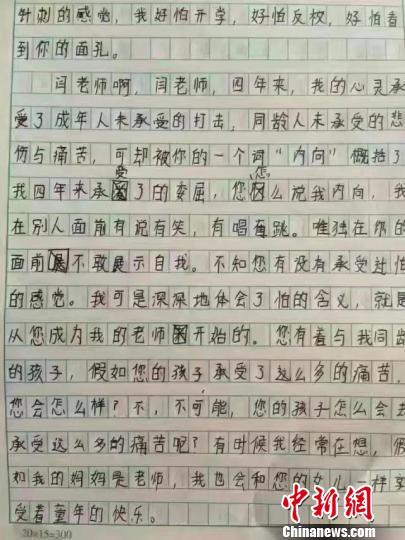 针刺的感觉，我好怕开学，好怕反校，好怕看
到你的面孔。
闫老师啊，闫老师，四年来，我的心灵承
受了成年人未承受的打击，同龄人未承受的悲
伤与痛苦，可却被你的一个词“内向”慨括了
我四年来承受了的委屈，您怎么说我内向，我
在别人面前有说有笑，有唱有跳。唯独在你的
面前不敢展示自我。不知您有没有承受过怕
的感觉。我可是深深地体会了怕的含义，就是
从您成为我的老师开始的。您有着与我同龄
的孩子，假如您的孩子承受了这么多的痛苦，
您会怎么样？不，不可能，您的孩子怎么会去
承受这么多的痛苦呢？有时候我经常在想，假
如我的妈妈是老师，我也会和您的女儿一样享
受着童年的快乐。
20×15=300
中新网
Chinanews.com